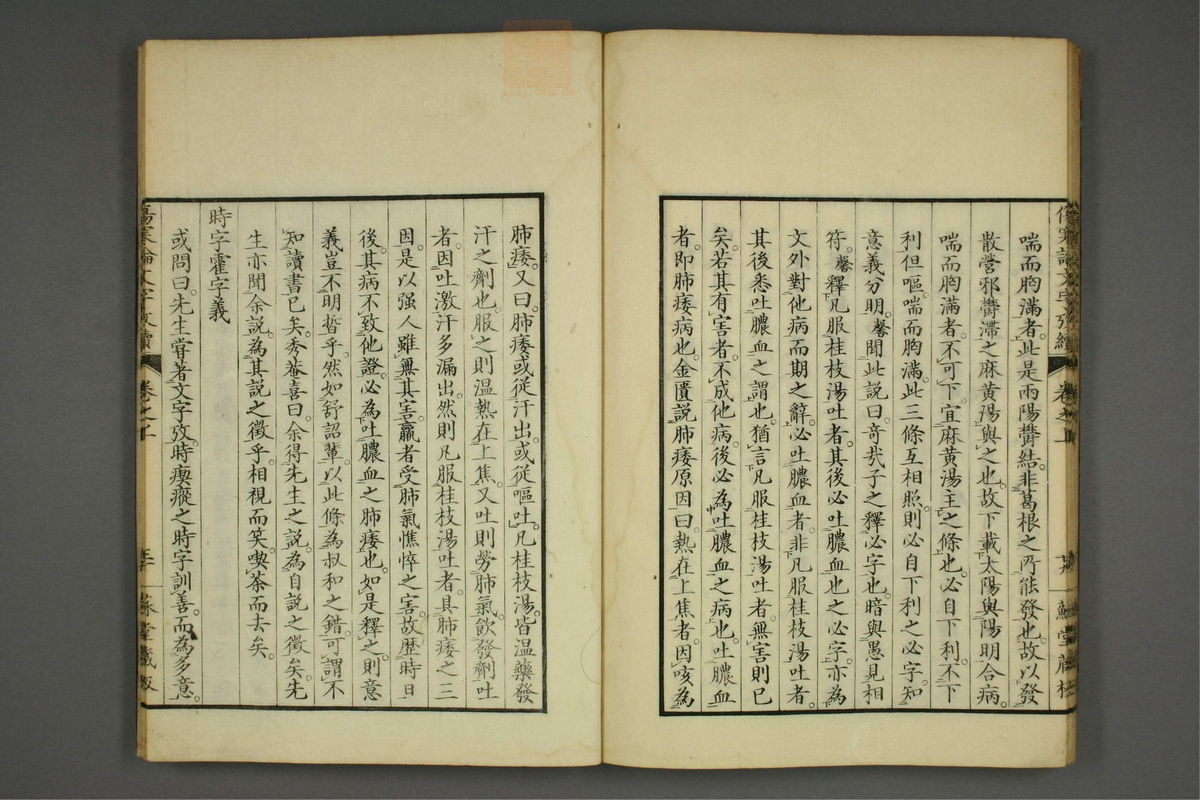 喘而胸滿者。此是兩陽欝結。非葛根之所能發也。故以發
散營邪欝滯之麻黄湯與之也。故下載太陽與陽明合病。
喘而胸滿者。不可下。宜麻黄湯主之條也。必自下利。不下
利但嘔。喘而胸滿。此三條互相照。則必自下利之必字。知
意義分明。馨聞此說曰。奇哉子之釋必字也。暗與愚見相
符。馨釋凡服桂枝湯吐者。其後必吐膿血也之必字。亦為
文外對他病而期之辭。必吐膿血者。非凡服桂枝湯吐者。
其後悉吐膿血之謂也。猶言凡服桂枝湯吐者。無害則已
矣。若其有害者。不成他病。後必為吐膿血之病也。吐膿血
者。即肺痿病也。金匱說肺痿原因曰。熱在上焦者。因咳為
肺痿。又曰。肺痿或從汗出。或從嘔吐。凡桂枝湯。皆温藥發
汗之劑也。服之則温熱在上焦。又吐則勞肺氣。飲發劑吐
者。因吐激汗多漏出。然則凡服桂枝湯吐者。具肺痿之三
因。是以强人雖無其害。羸者受肺氣憔悴之害。故歷時日
後。其病不致他證。必為吐膿血之肺痿也。如是釋之。則意
義豈不明晳乎。然如舒詔輩。以此條為叔和之錯。可謂不
知讀書已矣。秀菴喜曰。余得先生之說。為自說之徵矣。先
生亦聞余說。為其說之徵乎。相視而笑。喫茶而去矣。
時字霍字義
或問曰。先生甞著文字攷。時瘈瘲之時字訓善。而為多意。